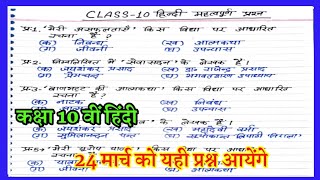 CLASS-10 हिन्दी महत्वपूर्ण प्रश्न
प्र-1. 'मेरी असफलताएँ' किस विधा पर आधारित
रचना है ?
(क) निबन्ध (ख) आत्मकथा
(ग) जीवनी (घ) उपन्यास
प्र-2. निम्नलिखित में 'सेवासदन' के लेखक हैं।
(क) जयशंकर प्रसाद (ख) डा० राजेन्द्र प्रसाद
(ग) प्रेमचन्द (घ) भगवतशरण उपाध्याय
प्र-3. 'बाणभट्ट की आत्मकथा' किस विधा पर आधारित
(क) नाटक (ख) निबंध
(घ) उपन्यास
कक्षा 10 वीं हिंदी
के लेखक हैं।
(क) जयशंकर प्रसाद (ख) महादेवी वर्मा
(ग) सुमित्रानन्दन पन्त (घ) सूर्यकान्त त्रिपाठी निराला
प्र-5. 'मेरी यूरोप
24 मार्च को यही प्रश्न आयेंगे